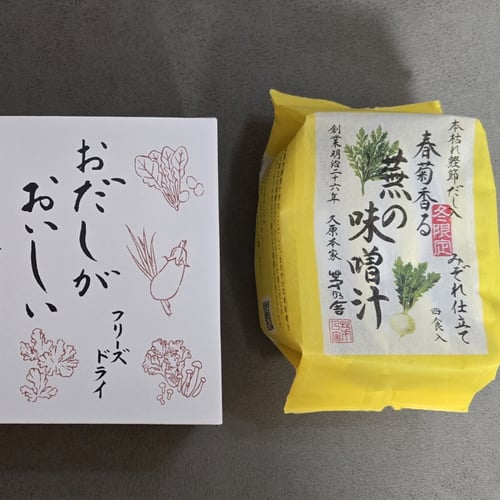 おだしが
おいしい
フリーズ
ドライ
本枯れ鰹節だし入
春菊香る
冬限定
みぞれ仕立て
蕪の味噌汁
四人食入
創業明治二十六年
久原本家
茅乃舎